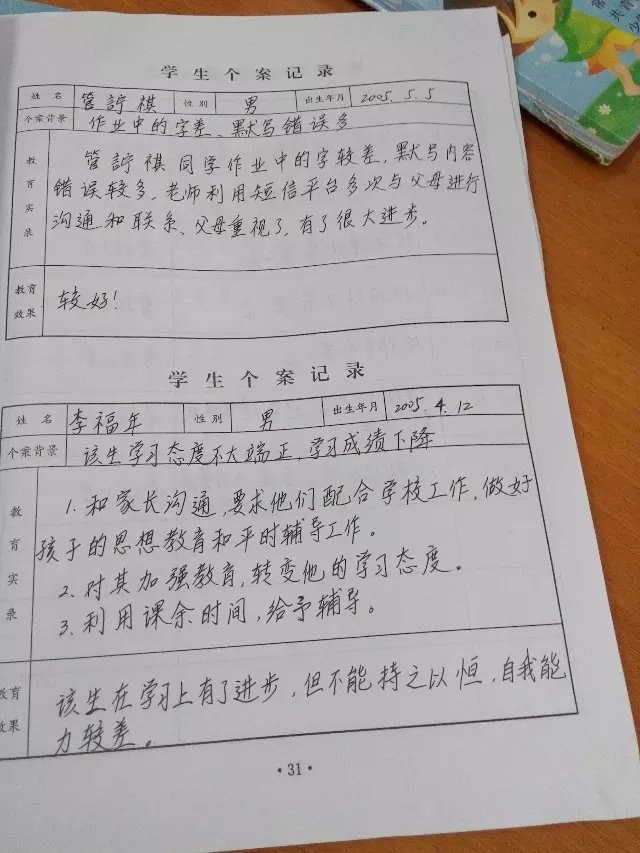 学生个案记录
姓名 管詝棋 性别 男 出生年月 2005.5.5
个案背景 作业中的字差、默写错误多
教育实录
管詝棋同学作业中的字较差，默写内容
错误较多，老师利用短信平台多次与父母进行
沟通和联系、父母重视了，有了很大进步。
教育效果 较好！
学生个案记录
姓名 李福年 性别 男 出生年月 2005.4.12
个案背景 该生学习态度不大端正，学习成绩下降
教育实录
1. 和家长沟通，要求他们配合学校工作，做好
孩子的思想教育和平时辅导工作。
2. 对其加强教育，转变他的学习态度。
3. 利用课余时间，给予辅导。
教育效果
该生在学习上有了进步，但不能持之以恒，自我能
力较差。
·31·